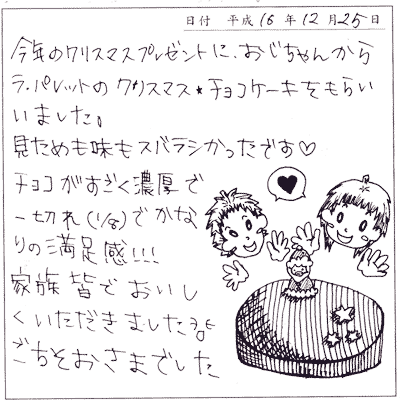 日付 平成 16 年 12 月 25 日
今年のクリスマスプレゼントに、おじちゃんから
ラ・パレットの クリスマス★チョコケーキをもらい
いました。
見ためも味もスバラシかったです♡
チョコがすごく濃厚で
一切れ(1/8)でかな
りの満足感!!!
家族皆でおいし
くいただきました
ごちそおさまでした